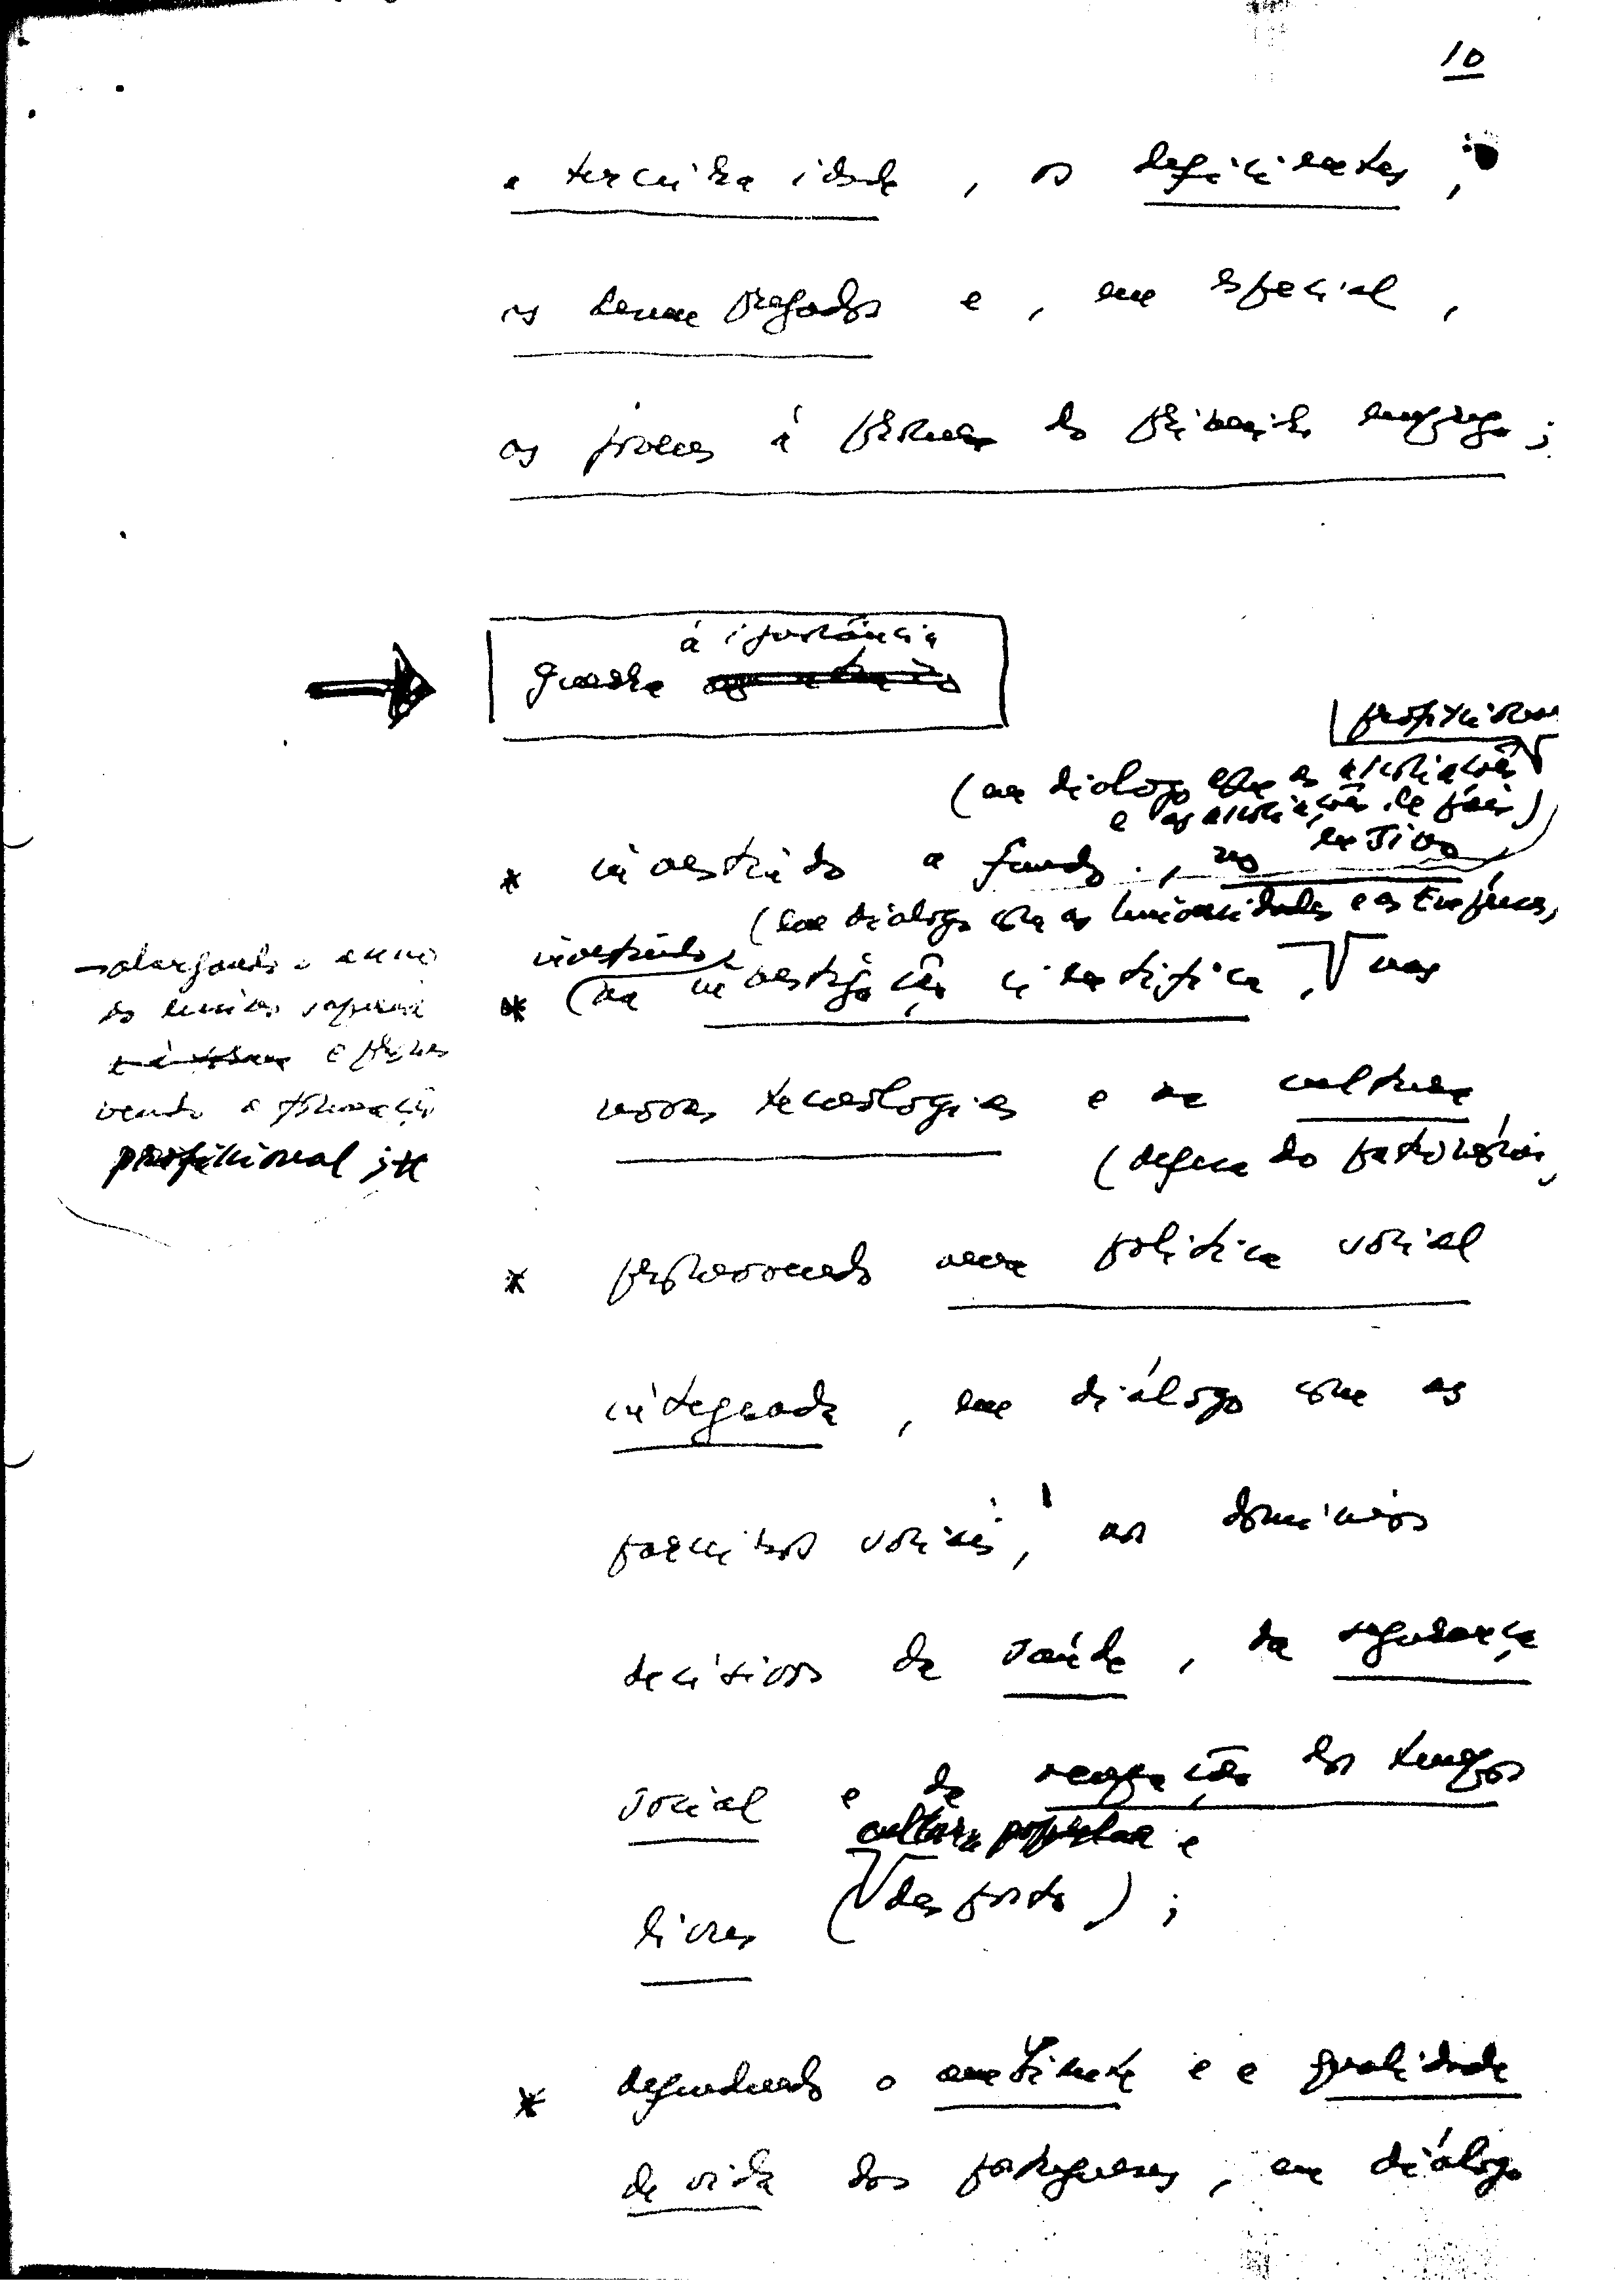 10
a terceira idade, os deficientes,
os desempregados e, em especial,
os jovens à procura do primeiro emprego;
à ignorância
guerra
profissionais
(em diálogo com as associações
e as associações de pais)
ensino
* investindo a fundo, no
(em diálogo com as Universidades e as Empresas,
investindo
* (na investigação científica, nas
novas tecnologias e na cultura
(defesa do património,
→ alargando o acesso
ao ensino superior
e promo
vendo a formação
profissional;
* promovendo uma política social
integrada, em diálogo com os
parceiros sociais, nos domínios
decisivos da saúde, da segurança
social e da ocupação dos tempos
cultura popular e
livres (desporto);
* defendendo o ambiente e a qualidade
de vida dos portugueses, em diálogo